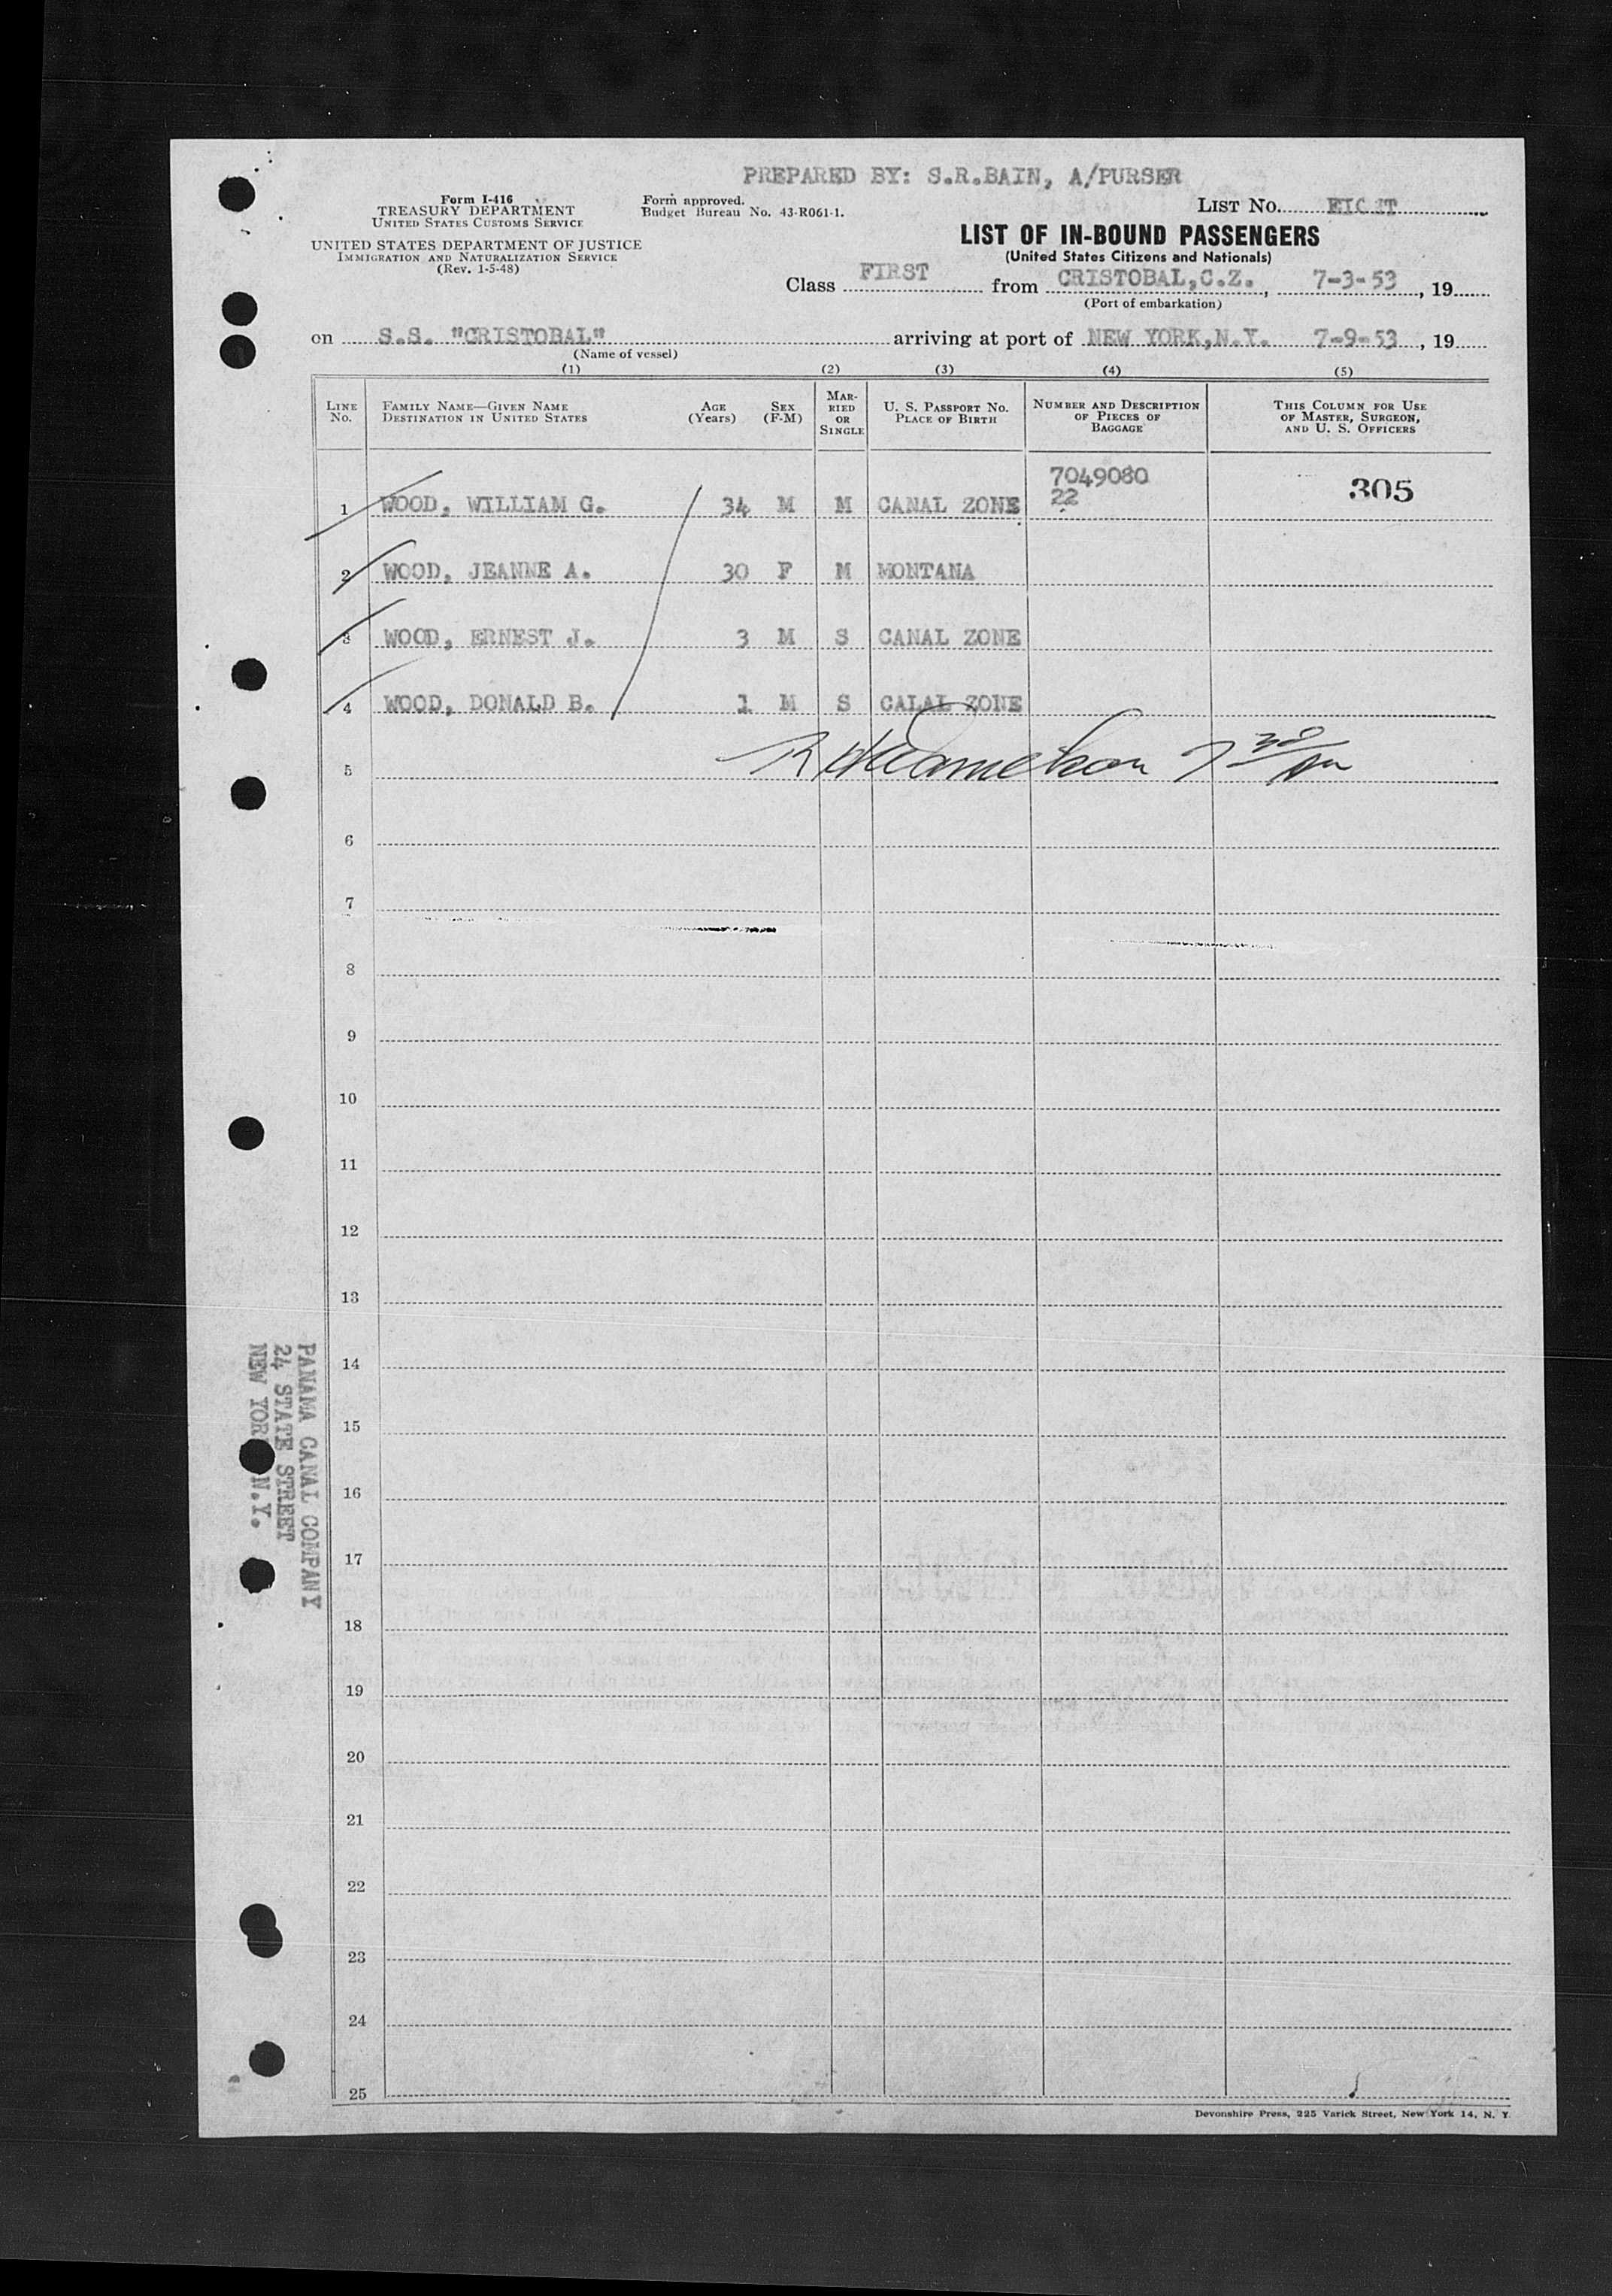 PREPARED BY: S.R.BAIN, A/PURSER
Form I-416
TREASURY DEPARTMENT
UNITED STATES CUSTOMS SERVICE
UNITED STATES DEPARTMENT OF JUSTICE
IMMIGRATION AND NATURALIZATION SERVICE
(Rev. 1-5-48)
Form approved.
Budget Bureau No. 43-R061-1.
LIST No.
LIST OF IN-BOUND PASSENGERS
(United States Citizens and Nationals)
Class FIRST from CRISTOBAL,C.Z., 7-3-53, 19
(Port of embarkation)
on S.S. "CRISTOBAL" arriving at port of NEW YORK,N.Y. 7-9-53, 19
(Name of vessel)
(1) (2) (3) (4) (5)
LINE No. FAMILY NAME—GIVEN NAME DESTINATION IN UNITED STATES AGE (Years) SEX (F-M) MARRIED OR SINGLE U. S. PASSPORT No. PLACE OF BIRTH NUMBER AND DESCRIPTION OF PIECES OF BAGGAGE THIS COLUMN FOR USE OF MASTER, SURGEON, AND U. S. OFFICERS
7049080
1 WOOD, WILLIAM G. 34 M M CANAL ZONE 22 305
2 WOOD, JEANNE A. 30 F M MONTANA
3 WOOD, ERNEST J. 3 M S CANAL ZONE
4 WOOD, DONALD B. 1 M S CALAL ZONE
5
6
7
8
9
10
11
12
13
14
15
16
17
18
19
20
21
22
23
24
25
PANAMA CANAL COMPANY
24 STATE STREET
NEW YOR N.Y.
Devonshire Press, 225 Varick Street, New York 14, N. Y.